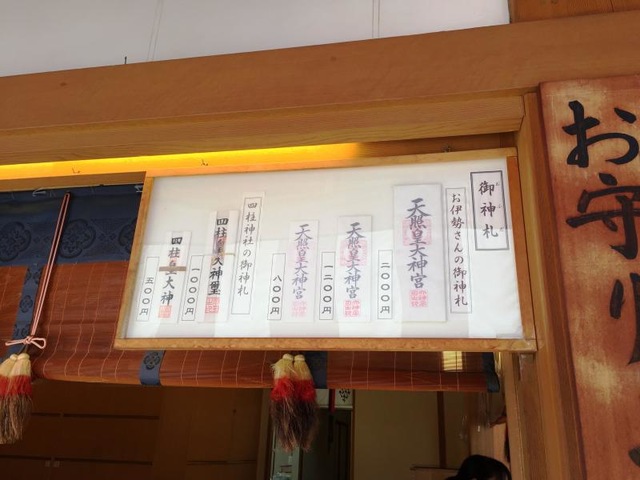 御神札
お伊勢さんの御神札
天照皇大神宮
二〇〇〇円
天照皇大神宮
一二〇〇円
天照皇大神宮
八〇〇円
四柱神社の御神札
四柱大神璽
一〇〇〇円
四柱大神
五〇〇円
お守り